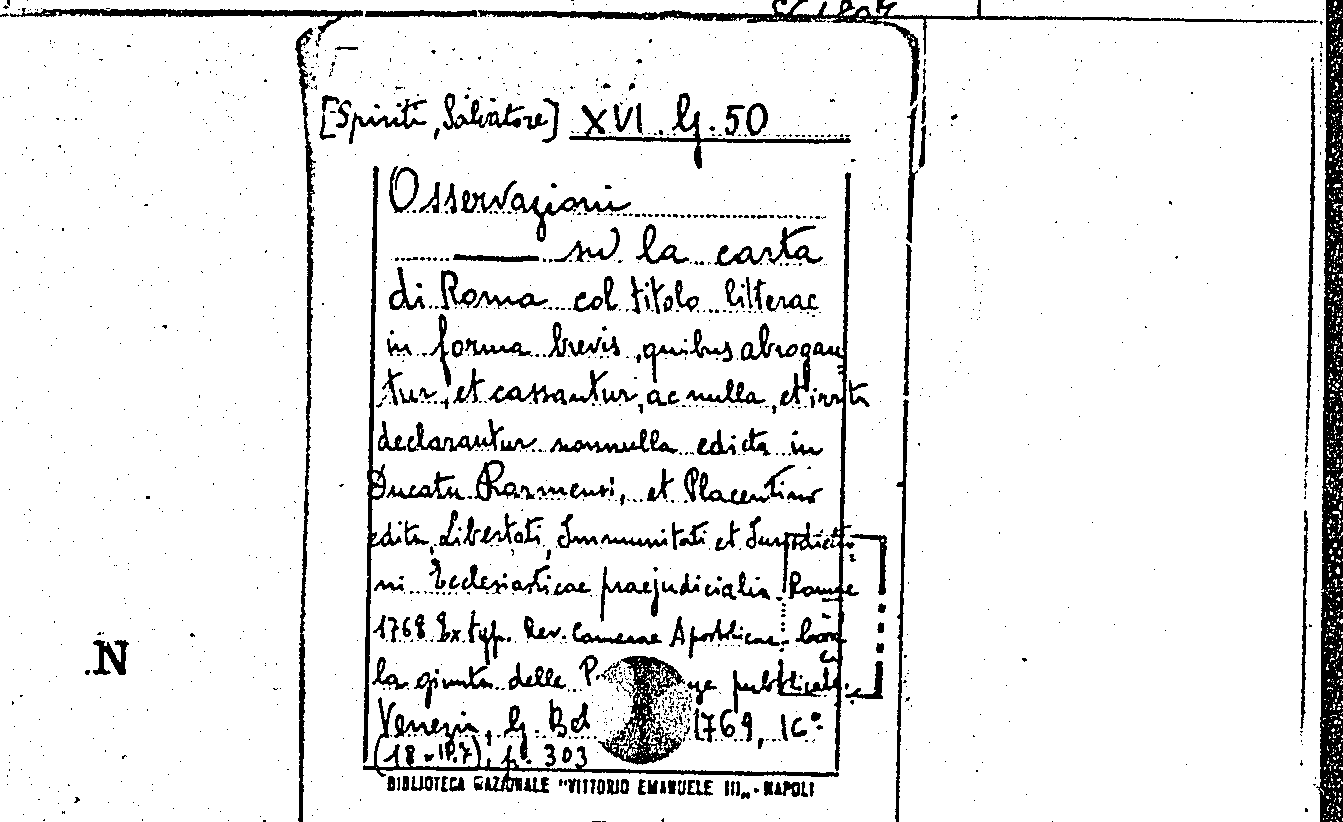 [Spiriti, Salvatore] XVI. G. 50
Osservazioni
su la carta
di Roma col titolo litterae
in forma brevis, quibus abrogan
tur, et cassantur, ac nulla, et irrita
declarantur nonnulla edicta in
Ducatu Parmensi, et Placentino
edita, Libertati, Immunitati et Jurisdictio
ni Ecclesiasticae praejudicialia. Romae
1768 Ex typ. Rev. Camerae Apostolicae
la giunta delle
Venezia, G. 1769, 16°
p. 303
BIBLIOTECA NAZIONALE "VITTORIO EMANUELE III„ - NAPOLI
.N